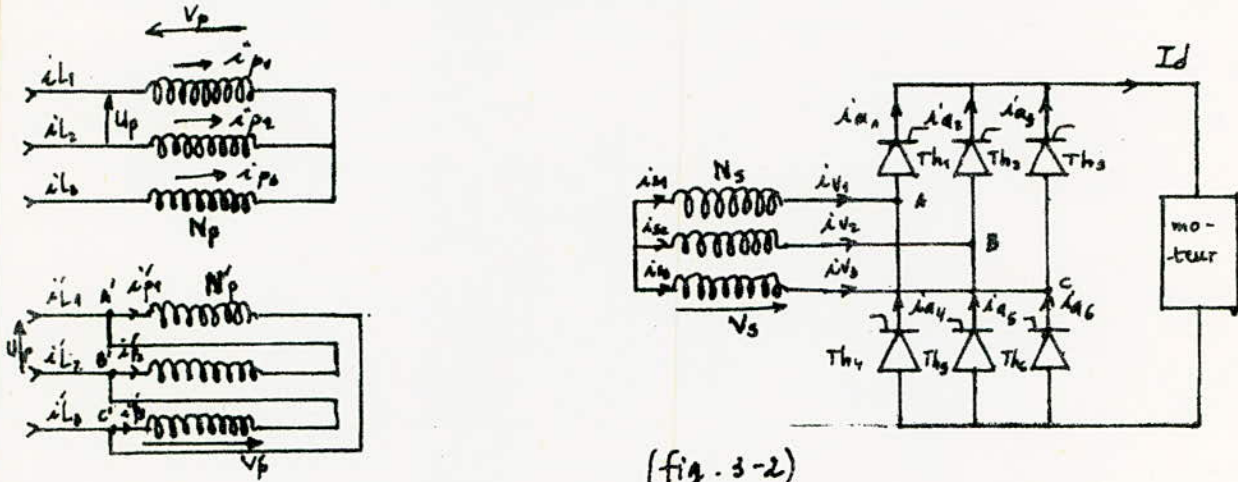 Vp
iL1
ip1
Up
iL2
ip2
iL3
ip3
Np
i'L1
A'
i'p1
N'p
i'L2
B'
i'p2
i'L3
C'
Vp
Id
ia1
ia2
ia3
Th1
Th2
Th3
Ns
is1
iv1
A
is2
iv2
B
is3
iv3
C
Vs
ia4
ia5
ia6
Th4
Th5
Th6
mo-
teur
(fig. 3-2)